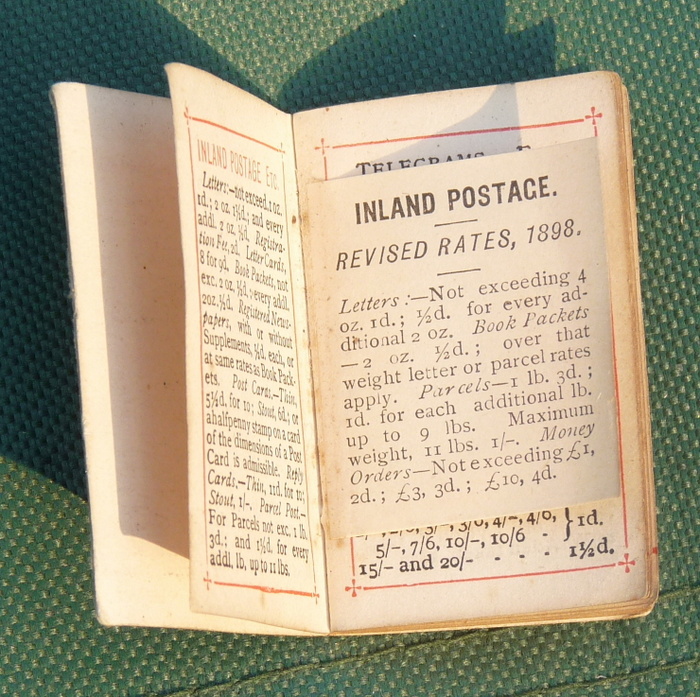 INLAND POSTAGE ETC.
Letters:—not exceed. 1 oz.
1d.; 2 oz. 1½d.; and every
addl. 2 oz. ½d. Registra-
tion Fee, 2d. Letter Cards,
8 for 9d. Book Packets, not
exc. 2 oz. ½d.; every addl.
2oz. ½d. Registered News-
papers, with or without
Supplements, ½d. each, or
at same rates as Book Pack-
ets. Post Cards.—Thin,
5½d. for 10; Stout, 6d.; or
a halfpenny stamp on a card
of the dimensions of a Post
Card is admissible. Reply
Cards.—Thin, 11d. for 10;
Stout, 1/-. Parcel Post.—
For Parcels not exc. 1 lb.
3d.; and 1½d. for every
addl. lb. up to 11 lbs.
TELEGRAMS
INLAND POSTAGE.
REVISED RATES, 1898.
Letters:—Not exceeding 4
oz. 1d.; ½d. for every ad-
ditional 2 oz. Book Packets
—2 oz. ½d.; over that
weight letter or parcel rates
apply. Parcels—1 lb. 3d.;
1d. for each additional lb.
up to 9 lbs. Maximum
weight, 11 lbs. 1/-. Money
Orders—Not exceeding £1,
2d.; £3, 3d.; £10, 4d.
3/6, 4/-, 4/6, } 1d.
5/-, 7/6, 10/-, 10/6 -
15/- and 20/- - - - 1½d.